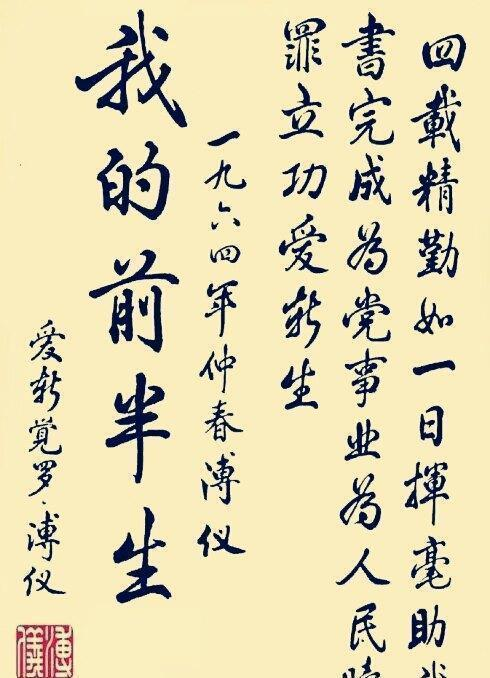 四載精勤如一日揮毫助我
書完成為党事业為人民贖
罪立功爱新生
一九六四年仲春溥仪
我的前半生
爱新覚罗·溥仪
溥儀